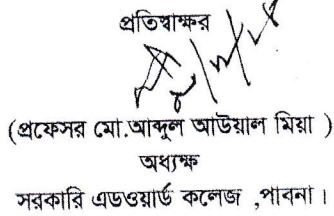 প্রতিস্বাক্ষর
(প্রফেসর মো.আব্দুল আউয়াল মিয়া )
অধ্যক্ষ
সরকারি এডওয়ার্ড কলেজ ,পাবনা।